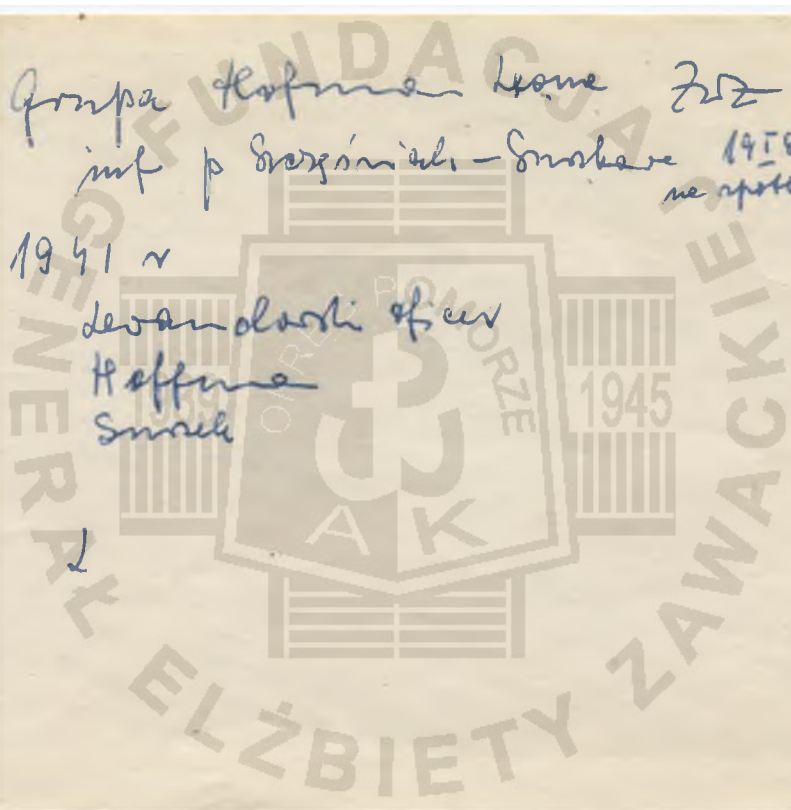 Grupa Hofman Leona ZWZ
inf p Szczęśniak - Smokare 14 I 8
na spotk
1941 r
Lewandowski oficer
Hoffman
Smrek
L
FUNDACJA
GENERAŁ ELŻBIETY ZAWACKIEJ
OKRĘG POMORZE
1939 1945
AK